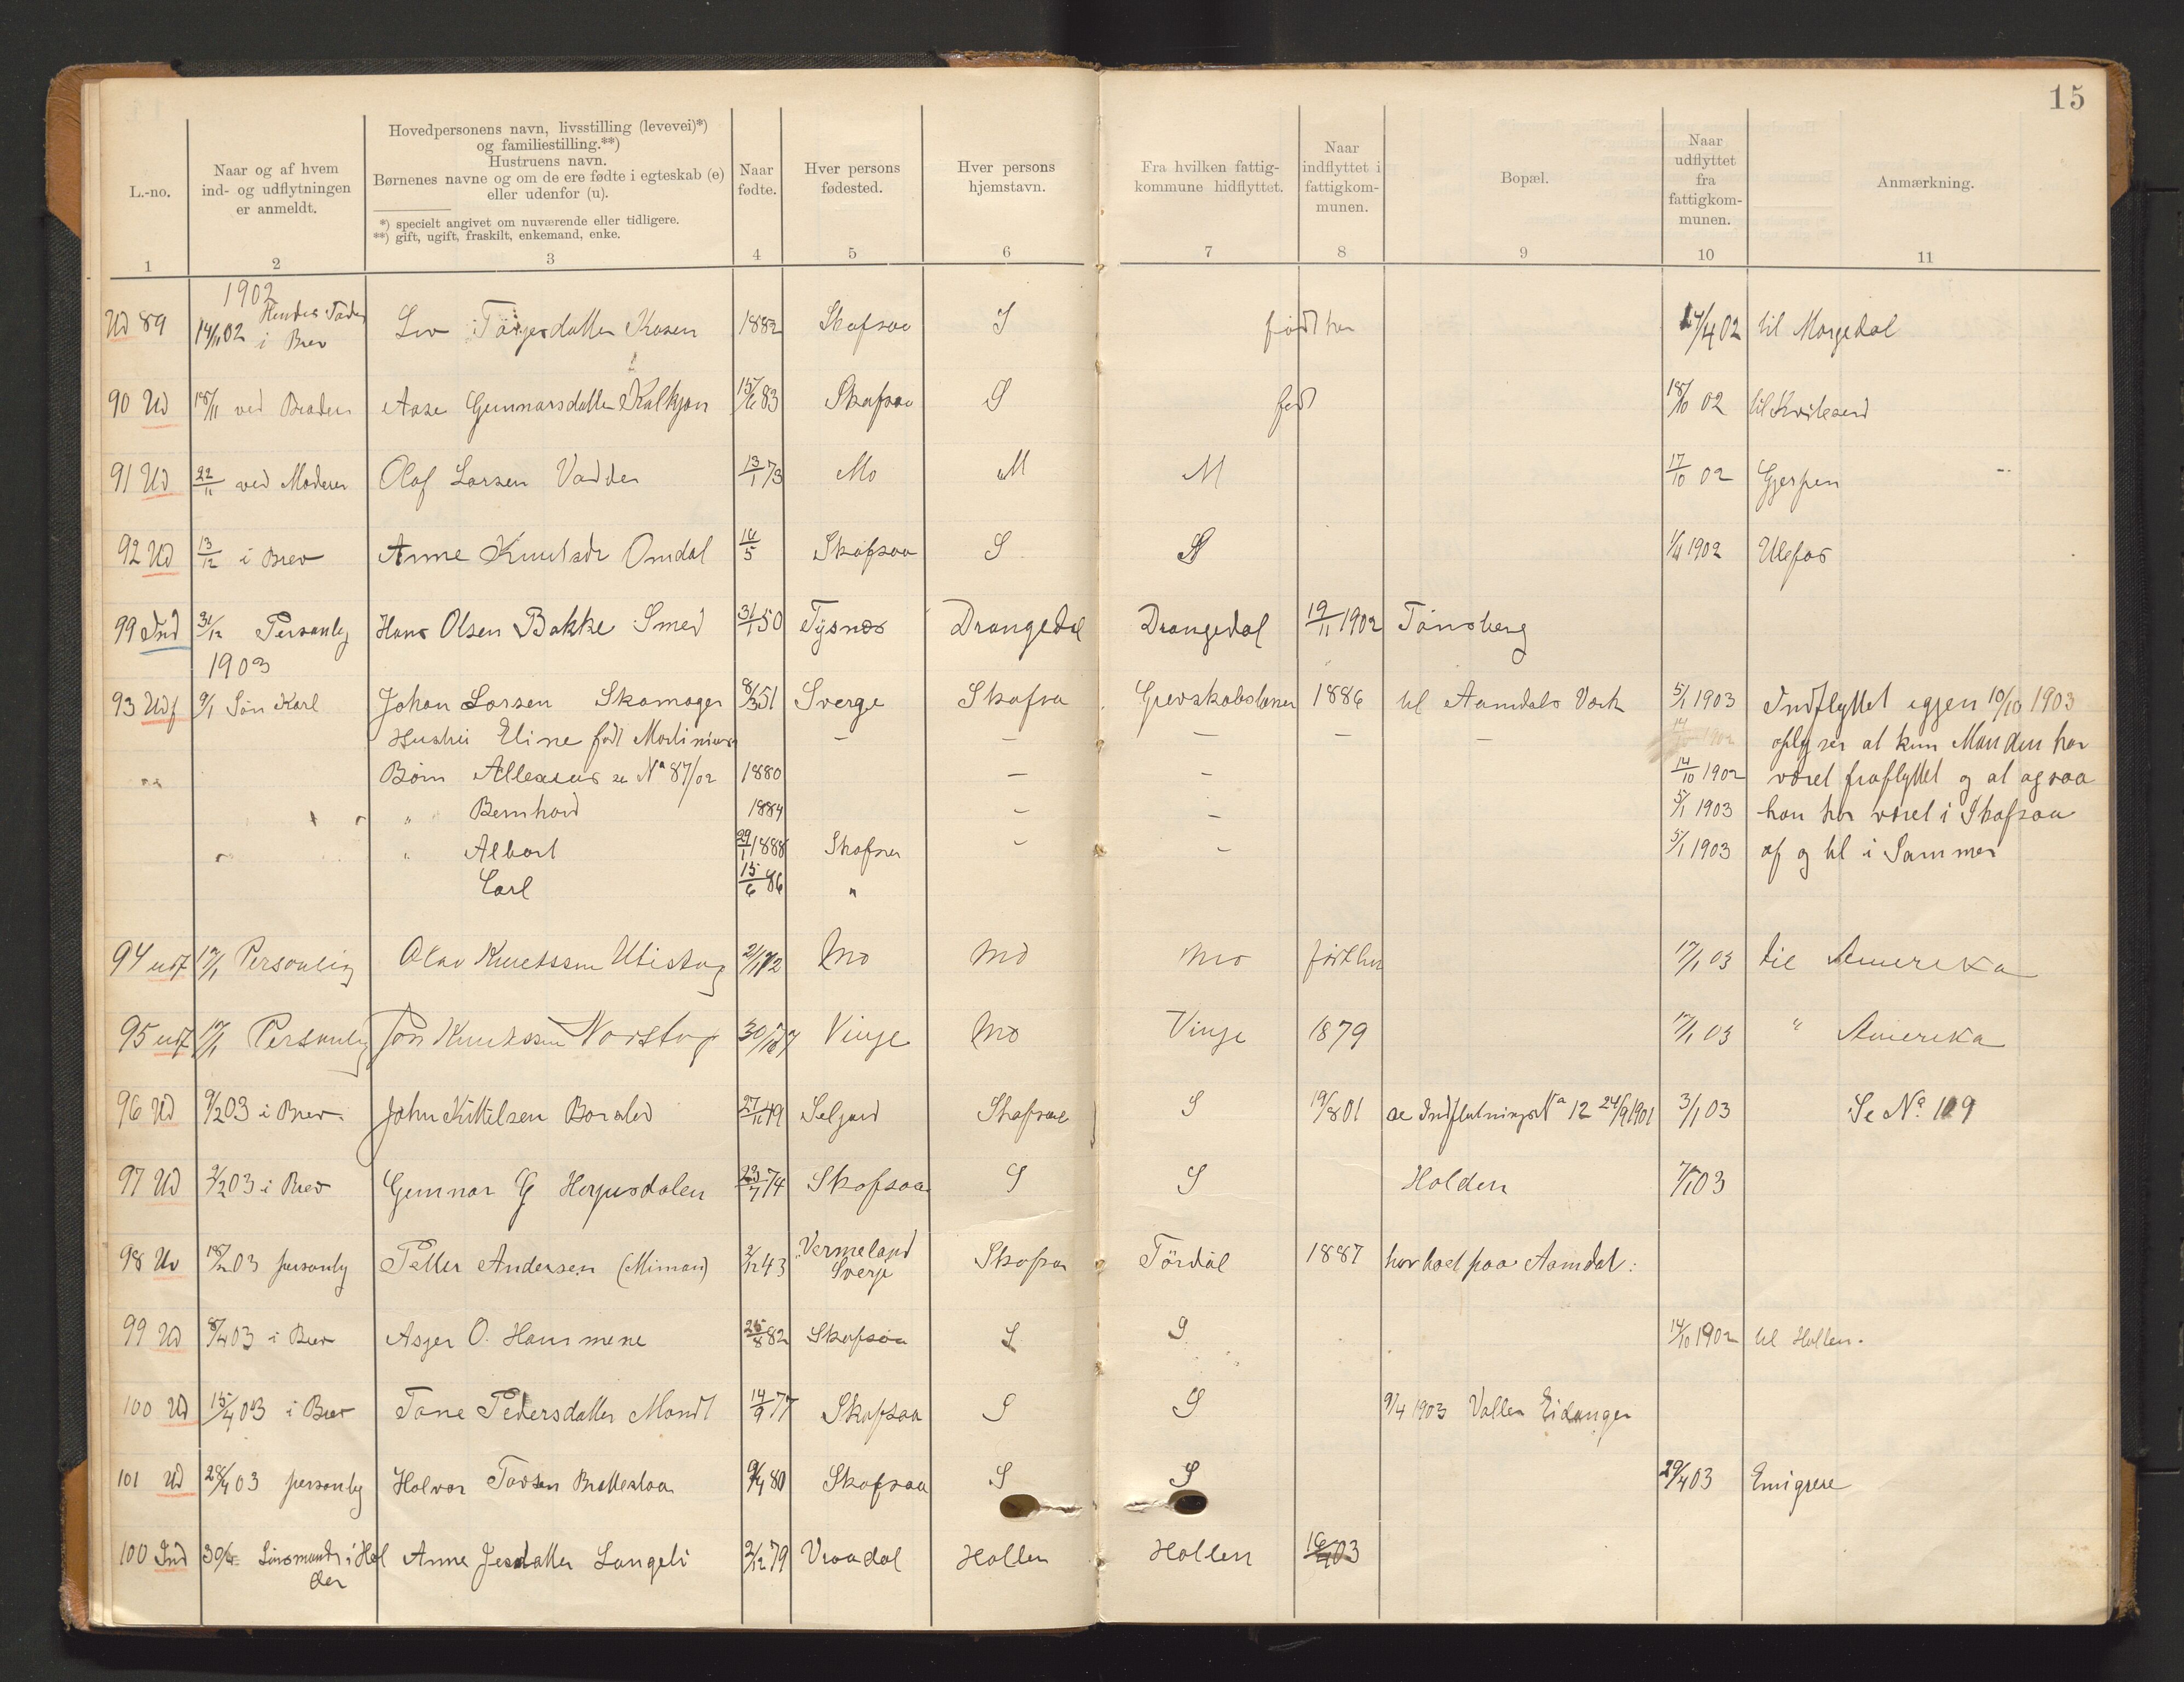 15
L.-no.
Naar og af hvem
ind- og udflytningen
er anmeldt.
Hovedpersonens navn, livsstilling (levevei)*)
og familiestilling.**)
Hustruens navn.
Børnenes navne og om de ere fødte i egteskab (e)
eller udenfor (u).
*) specielt angivet om nuværende eller tidligere.
**) gift, ugift, fraskilt, enkemand, enke.
Naar
fødte.
Hver persons
fødested.
Hver persons
hjemstavn.
Fra hvilken fattig-
kommune hidflyttet.
Naar
indflyttet i
fattigkom-
munen.
Bopæl.
Naar
udflyttet
fra
fattigkom-
munen.
Anmærkning.
1 2 3 4 5 6 7 8 9 10 11
1902
Ud 89 14/11 02 Hendes Fader i Brev Liv Targesdatter Kasen 1882 Skafsaa S født her /4 02 til Morgedal
90 Ud 18/11 ved Broderen Aase Gunnarsdatter 15/6 83 Skafsaa S født 18/10 02 til Kviteseid
91 Ud 22/11 ved Moderen Olaf Larsen Vadder 13/1 73 Mo M M 17/10 02 Gjerpen
92 Ud 13/12 i Brev Anne Knutsdr Omdal 16/5 Skafsaa S S 1/4 1902 Ulefos
99 Ind 31/12 Personlig Hans Olsen Bakke Smed 31/1 50 Tysnes Drangedal Drangedal 19/11 1902 Tønsberg
1903
93 Udf 9/1 Søn Karl Johan Larsen Skomager 8/3 51 Sverge Skafsa Grevskabslaner 1886 til Aamdals Værk 5/1 1903 Indflyttet igjen 10/10 1903
Hustru Eline født Martiniusen — — — — — oplyser at kun Manden har
Børn se No 87/02 1880 — — 14/10 1902 været fraflyttet og at ogsaa
" Bernhard 1884 — — 5/1 1903 han har været i Skafsaa
" Albert 29/1 1888 Skafsaa — — 5/1 1903 af og til i Sommer
Carl 15/6 86 "
94 udf 17/1 Personlig Olav Knutssen Utistog 21/1 72 Mo Mo Mo født her 17/1 03 til Amerika
95 udf 17/1 Personlig Jon Knutssen Norstog 30/10 Vinje Mo Vinje 1879 17/1 03 " Amerika
96 Ud 9/2 03 i Brev John Kittelsen 27/ 49 Seljord Skafsaa S 19/8 01 se Indflytnings No 12 24/9 1901 3/1 03 Se No 109
97 Ud 2/2 03 i Brev Gunnar G Herjusdalen 23/7 74 Skafsaa S S Holden 7/1 03
98 Ud 18/2 03 personlig Petter Andersen (Minør) 2/12 43 Vermeland Sverje Skafsa Tördal 1887 har boet paa Aamdal.
99 Ud 8/4 03 i Brev Asger O. Hammene 25/8 82 Skafsaa S S 14/10 1902 til Hollen.
100 Ud 15/4 03 i Brev Tone Pedersdatter Mandt 14/9 77 Skafsaa S S 9/4 1903 Vallen Eidanger
101 Ud 28/4 03 personlig Halvor Tovsen Brattestaa 9/4 80 Skafsaa S S 29/4 03 Emigrere
100 Ind 30/4 Linsmands i Hol Anne Jesdatter Langeli 2/12 79 Vraadal Hollen Hollen 16/4 03
den